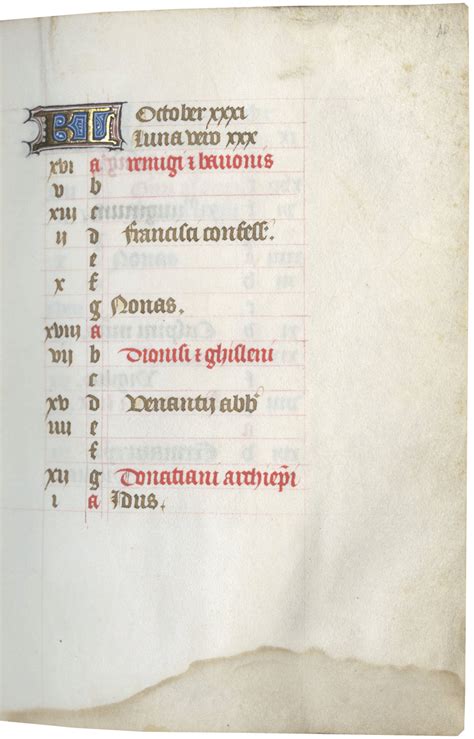 KL October xxxi
Luna vero xxx
xvi a remigi ⁊ bavonis
v b
xiii c
ii d francisci confess.
e
x f
g Nonas.
xviii a
vii b Dionisi ⁊ ghisleni
c
xv d Venantij abb
iiii e
f
xii g Donatiani archiepi
i a Idus.